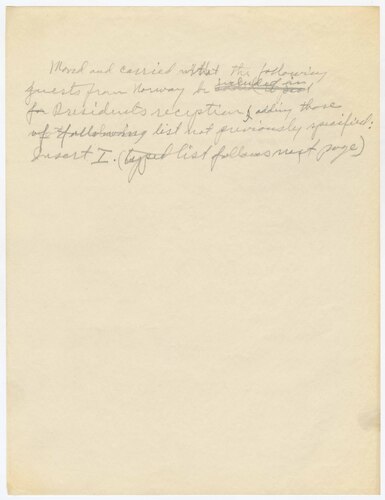 Moved and carried that the following
guests from Norway be included in
for Presidents reception, adding those
of following list not previously specified:
Insert I. (typed list follows next page)